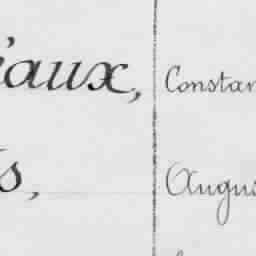 iaux, Constan
s, Augus